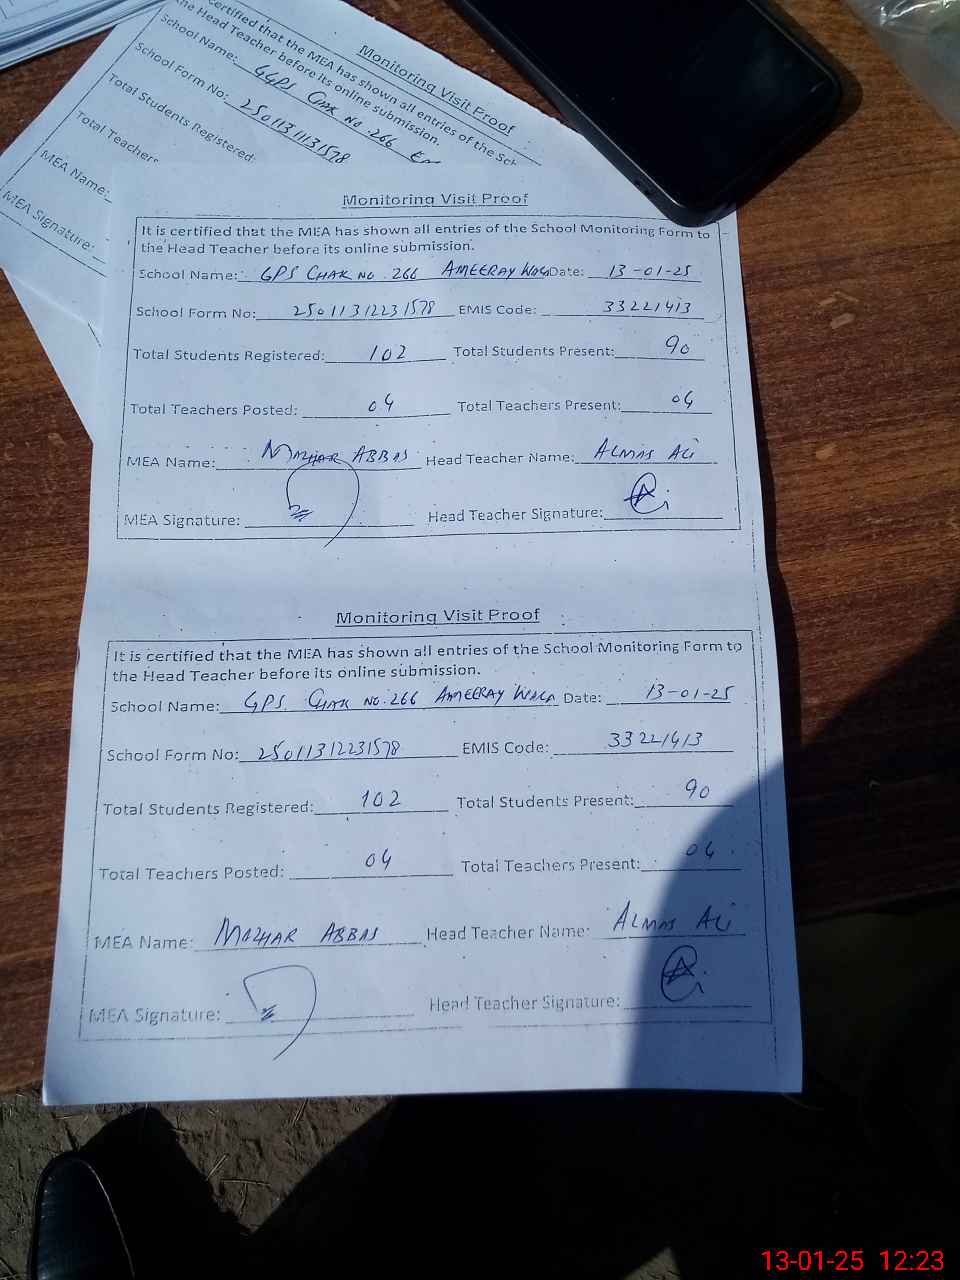 Monitoring Visit Proof
ertified that the MEA has shown all entries of the Sch
the Head Teacher before its online submission.
School Name: GGPS Chak No. 266
School Form No: 25011311131578
Total Students Registered:
Total Teachers
MEA Name:
MEA Signature:
Monitoring Visit Proof
It is certified that the MEA has shown all entries of the School Monitoring Form to
the Head Teacher before its online submission.
School Name: GPS CHAK NO. 266 AMEERAY WALA Date: 13-01-25
School Form No: 25011312231578 EMIS Code: 33221413
Total Students Registered: 102 Total Students Present: 90
Total Teachers Posted: 04 Total Teachers Present: 04
MEA Name: MAZHAR ABBAS Head Teacher Name: ALMAS ALI
MEA Signature: Head Teacher Signature:
Monitoring Visit Proof
It is certified that the MEA has shown all entries of the School Monitoring Form to
the Head Teacher before its online submission.
School Name: GPS CHAK NO. 266 AMEERAY WALA Date: 13-01-25
School Form No: 25011312231578 EMIS Code: 33221413
Total Students Registered: 102 Total Students Present: 90
Total Teachers Posted: 04 Total Teachers Present: 04
MEA Name: MAZHAR ABBAS Head Teacher Name: ALMAS ALI
MEA Signature: Head Teacher Signature:
13-01-25 12:23